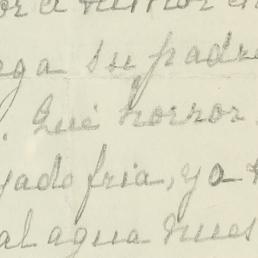 ega su padre
. Qué horror
yado fria, yo
al agua nues